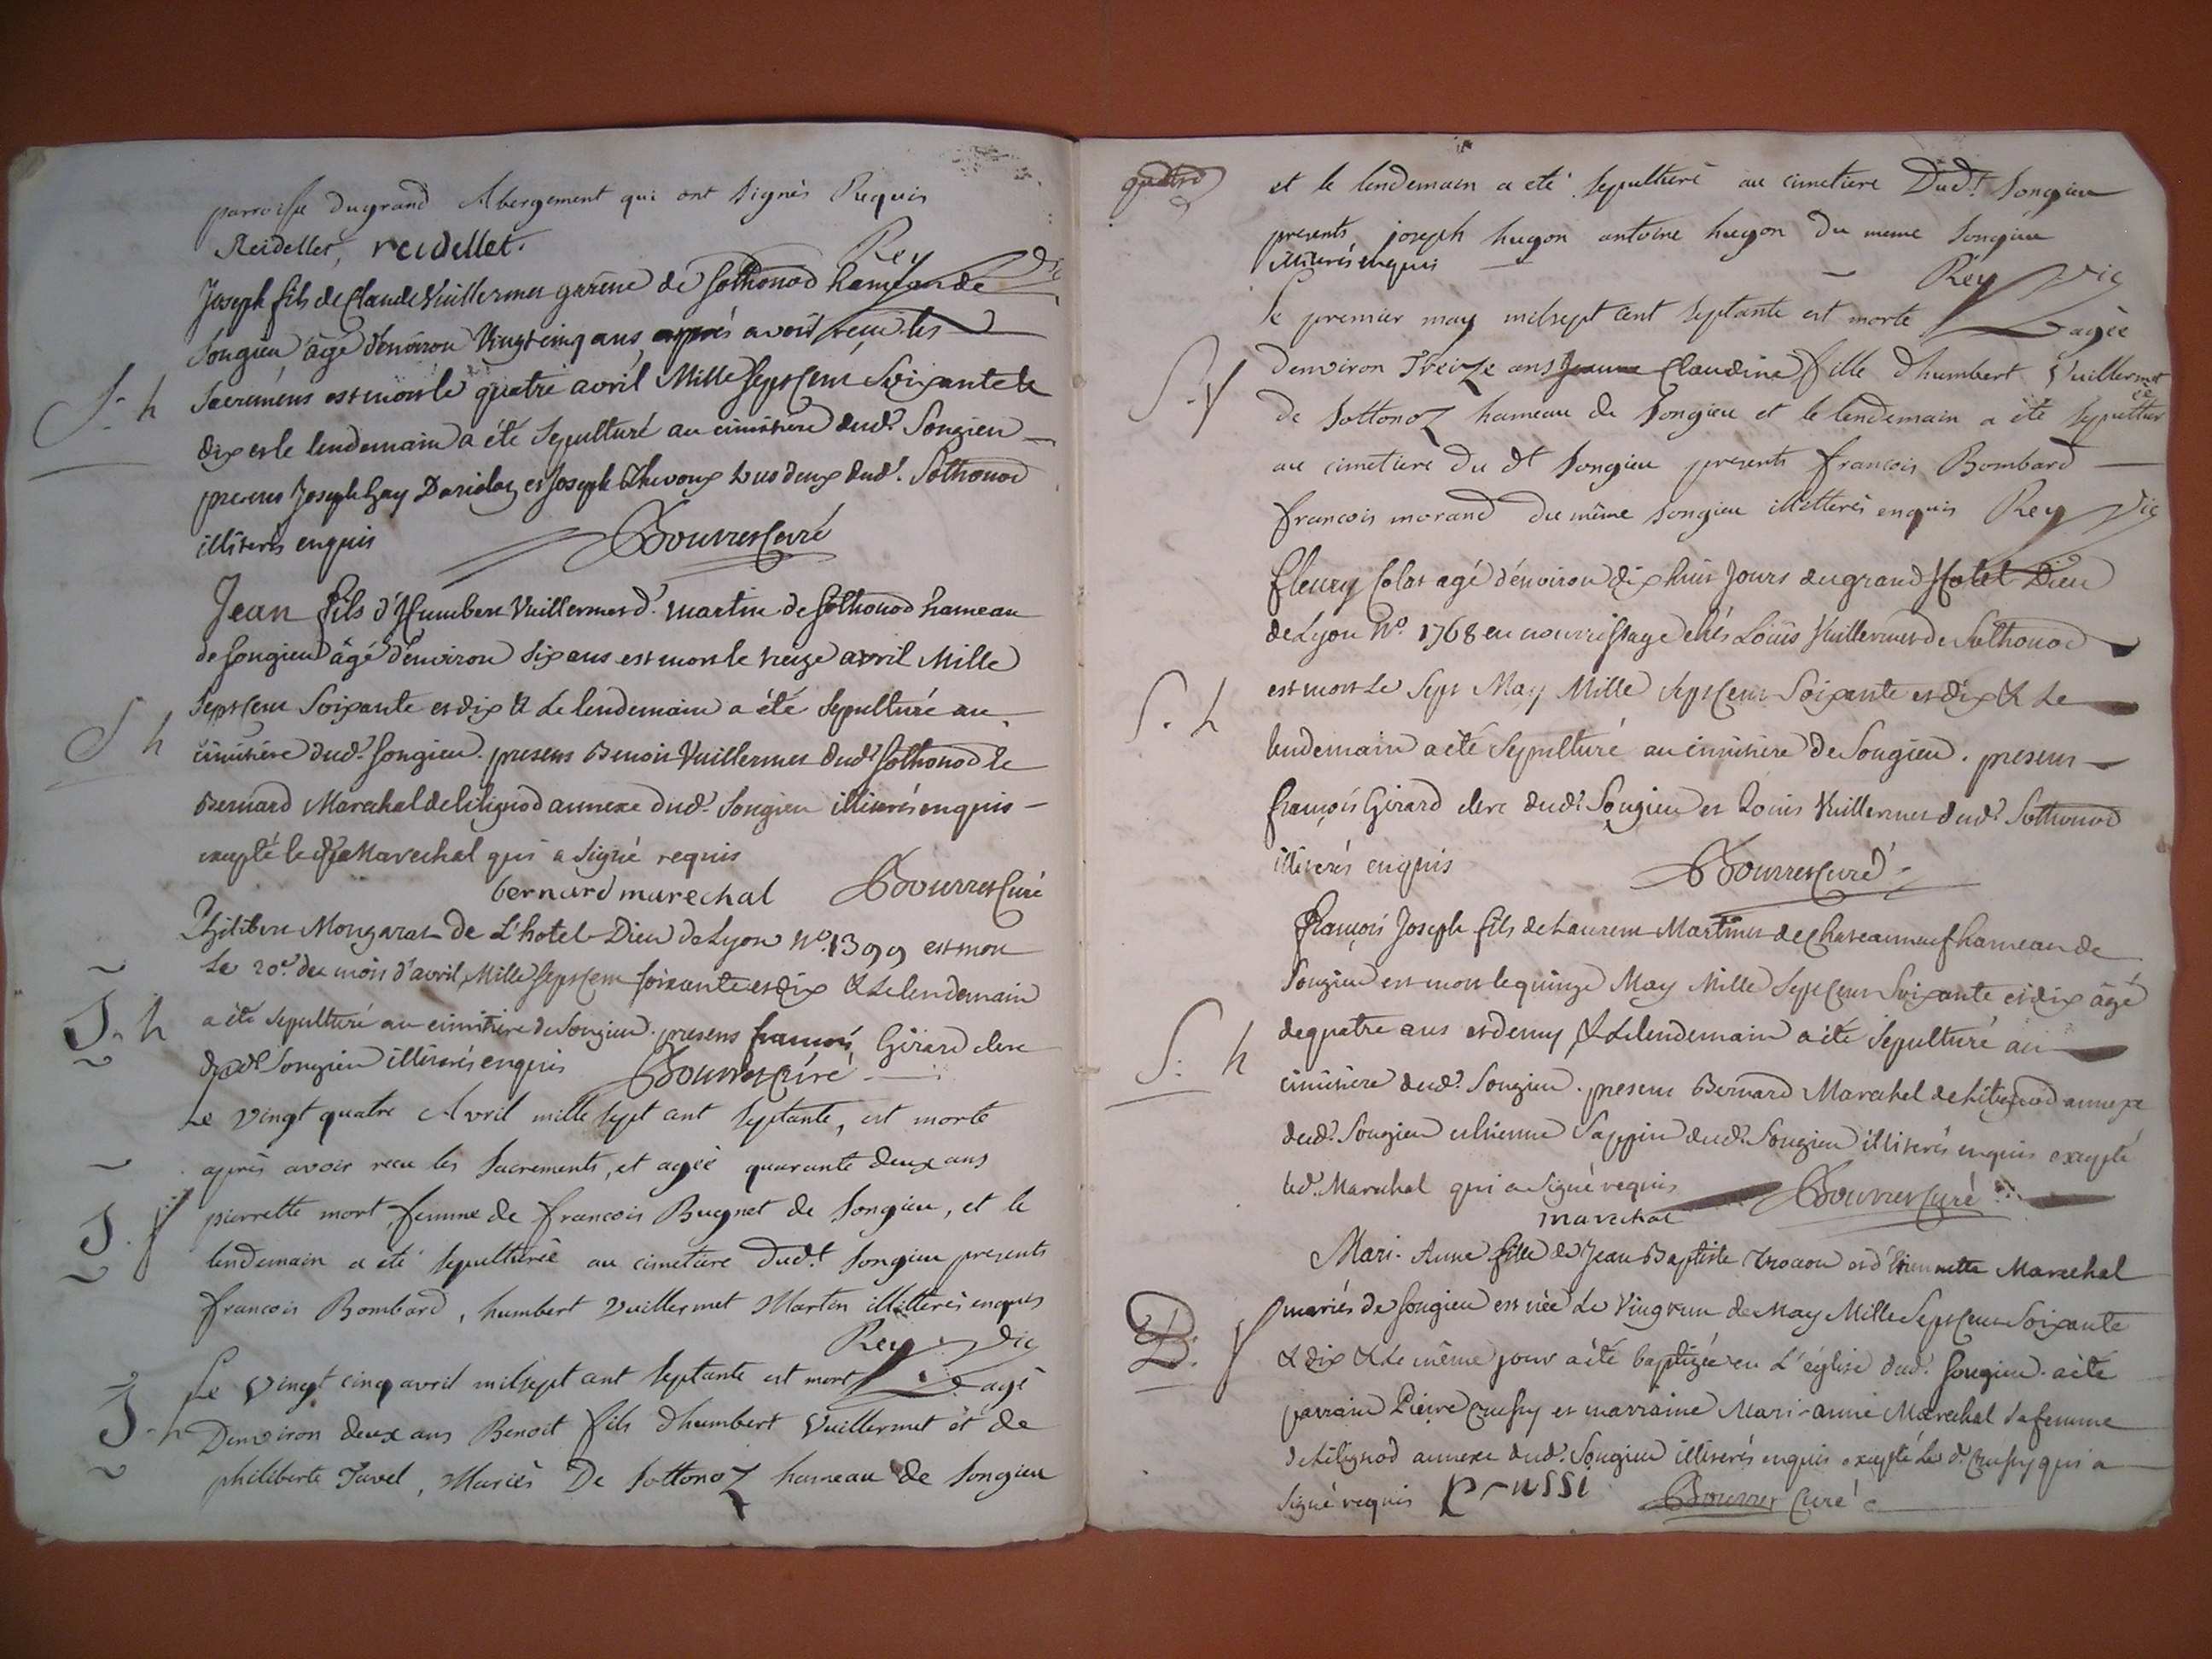 parroisse du grand Abergement qui ont signés Requis
Reidellet, reidellet. Rey Vic
Joseph fils de Claude Vuillermet garene de Sothonod hameau de
Songieu âgé d'environ Vingt cinq ans apprés avoir reçu les
S. h Sacremens est mort le quatre avril Mille Sept Cent Soixante et
dix et le lendemain a été Sepulturé au cimitiere dud.t Songieu
presens Joseph Gay et Joseph Thevoux tous deux dud.t Sothonod
illiterés enquis Bouvret Curé
Jean fils d'Humbert Vuillermet d. martin de Sothonod hameau
de Songieu âgé d'environ Six ans est mort le treize avril Mille
Sept Cent Soixante et dix & Le lendemain a été Sepulturé au
S h cimitiere dud.t Songieu. presens Benoit Vuillermet dud.t Sothonod &
Bernard Marechal de lilignod annexe dud.t Songieu illiterés enquis
excepté led. Marechal qui a Signé requis
bernard marechal Bouvret Curé
Philibert Mongarat de L'hotel Dieu de Lyon N.o 1399 est mort
Le 20.e du mois d'avril Mille Sept Cent Soixante et dix & Le lendemain
S. h a été Sepulturé au cimitiere de Songieu. presens françois Girard clerc
dud.t Songieu illiterés enquis Bouvret Curé
Le vingt quatre Avril mille sept cent septante, est morte
après avoir recu les Sacrements, et agée quarante deux ans
S. f pierrette mort, femme de francois Bugnet de Songieu, et le
lendemain a été sepulturée au cimetiere Dud.t Songieu presents
francois Bombard, humbert Vuillermet Martin illitterés enquis
Rey Vic
Le vingt cinq avril mil sept cent septante est mort agé
S. h D'environ deux ans Benoit fils d'humbert Vuillermet et de
philiberte Javel, Mariés De Sottonoz hameau de Songieu
quatre et le lendemain a eté sepulturé au cimetiere Dud.t Songieu
presents joseph hugon antoine hugon du meme Songieu
illiterés enquis Rey Vic
Le premier may mil sept cent septante est morte agée
S. f D'environ Treize ans Jeanne Claudine fille d'humbert Vuillermet
de Sottonoz hameau de Songieu et le lendemain a été sepulturée
au cimetiere du dt Songieu presents francois Bombard
francois morand du même Songieu illitterés enquis Rey Vic
fleury Colas agé d'environ dix huit Jours du grand Hotel Dieu
de Lyon N.o 1768 en nourrissage chés Loüis Vuillermet de Sothonod
S. h est mort Le Sept May Mille Sept Cent Soixante et dix & Le
lendemain a été Sepulturé au cimitiere de Songieu. presens
françois Girard clerc dud.t Songieu et Loüis Vuillermet dud.t Sothonod
illiterés enquis Bouvret Curé
François Joseph fils de Laurent Martinet de Chateauneuf hameau de
Songieu est mort le quinze May Mille Sept Cent Soixante et dix âgé
S. h de quatre ans et demy & Le lendemain a été Sepulturé au
cimitiere dud.t Songieu. presens Bernard Marechal de Lilignod annexe
dud.t Songieu et Etienne Sappin dud.t Songieu illiterés enquis excepté
led. Marechal qui a Signé requis Bouvret Curé
marechal
Mari-Anne fille de Jean Baptiste et d'Etiennette Marechal
mariés de Songieu est née Le Vingt un de May Mille Sept Cent Soixante
B. f & dix & Le même jour a été baptizée en L'église dud.t Songieu. a été
parrain Pierre Crussy et marraine Mari-anne Marechal Sa femme
de Lilignod annexe dud.t Songieu illiterés enquis excepté Le d. Crussy qui a
Signé requis Bouvret Curé